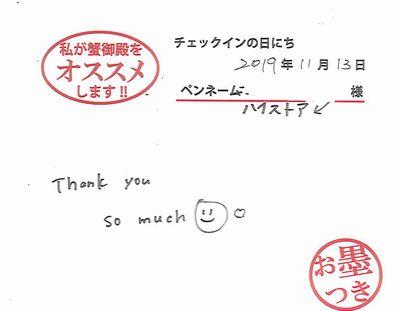 私が蟹御殿を
オススメ
します!!
チェックインの日にち
2019年11月13日
ペンネーム 様
ハイストア
Thank you
so much
お墨
つき